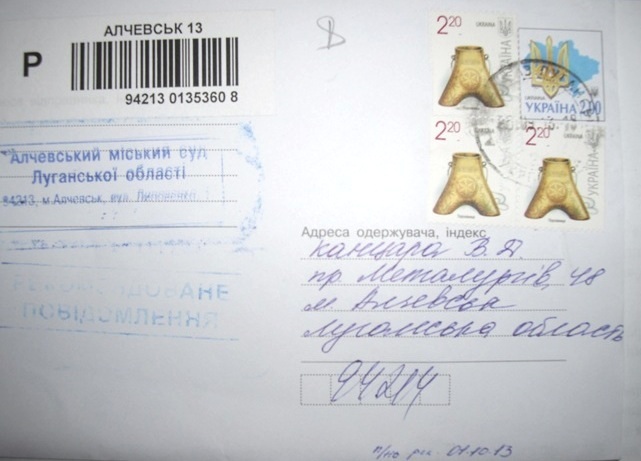 АЛЧЕВСЬК 13
Р
94213 0135360 8
Алчевський міський суд
Луганської області
94213, м.Алчевськ, вул.
РЕКОМЕНДОВАНЕ
ПОВІДОМЛЕННЯ
2.20
УКРАЇНА
2.20
2.20
УКРАЇНА
УКРАЇНА 2.00
Адреса одержувача, індекс
Канцара В.П.
пр. Металургів, 48
м. Алчевськ
Луганська область
94204
01.10.13